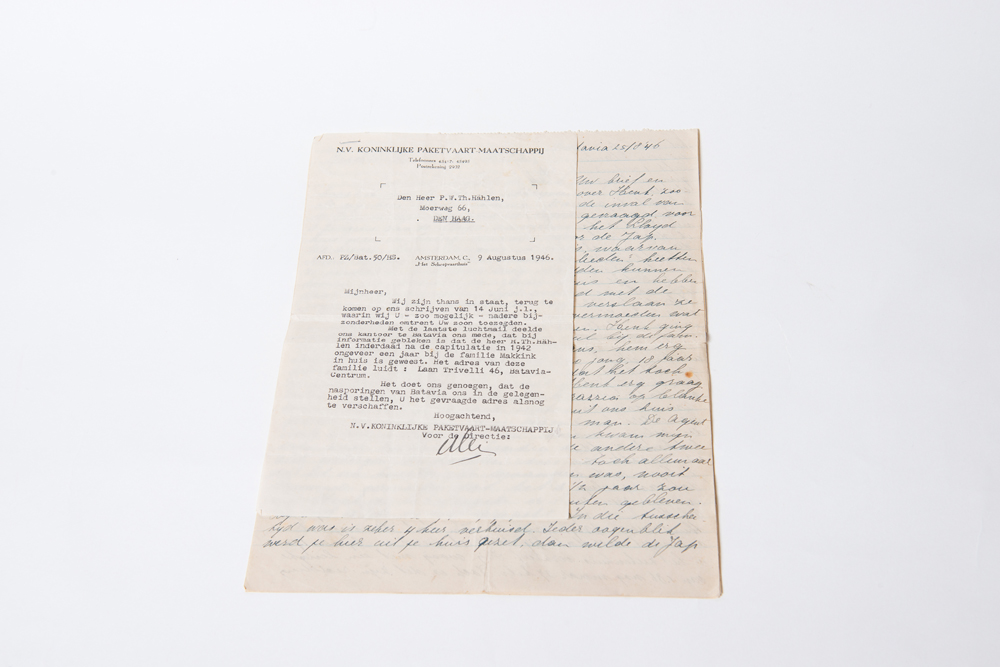 N.V. KONINKLIJKE PAKETVAART-MAATSCHAPPIJ
Den Heer P.W.Th.Hählen,
Moerweg 66,
DEN HAAG.
AFD. PZ/Bat.50/HS. AMSTERDAM, C. 9 Augustus 1946.
"Het Scheepvaarthuis"
Mijnheer,
Wij zijn thans in staat, terug te
komen op ons schrijven van 14 Juni j.l.,
waarin wij U - zoo mogelijk - nadere bij-
zonderheden omtrent Uw zoon toezegden.
Met de laatste luchtmail deelde
ons kantoor te Batavia ons mede, dat bij
informatie gebleken is dat de heer H.Th.Häh-
len inderdaad na de capitulatie in 1942
ongeveer een jaar bij de familie Makkink
in huis is geweest. Het adres van deze
familie luidt : Laan Trivelli 46, Batavia-
Centrum.
Het doet ons genoegen, dat de
nasporingen van Batavia ons in de gelegen-
heid stellen, U het gevraagde adres alsnog
te verschaffen.
Hoogachtend,
N.V.KONINKLIJKE PAKETVAART-MAATSCHAPPIJ
Voor de Directie:
tavia 25/8 '46
Uw brief en
over Henk, zoo
de inval van
gevraagd voor
het Lloyd
de Jap.
waarvan
heetten
kunnen
en hebben
met de
verslaan ze
vermoeden wat
Henk ging
bij de fam.
hem erg
jong, 18 jaar
het toch
Henk erg graag
op blanke
uit ons huis
man. De agent
kwam mijn
andere twee
toch allemaal
was, nooit
jaar zou
gebleven.
In die tusschen
tyd was ik zeker 4 keer verhuisd. Ieder oogenblik
werd je hier uit je huis gezet, dan wilde de Jap